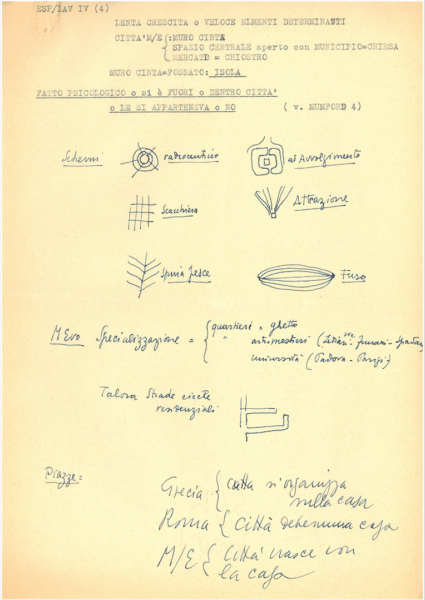 ESP/LAV IV (4)
LENTA CRESCITA o VELOCE ELMENTI DETERMINANTI
CITTA'M/E (:MURO CINTA
SPAZIO CENTRALE aperto con MUNICIPIO=CHIESA
MERCATO = CHIOSTRO
MURO CINTA=FOSSATO: ISOLA
FATTO PSICOLOGICO o si è FUORI o DENTRO CITTA'
o LE SI APPARTENEVA o NO ( v. MUMFORD 4)
Schemi radiocentrico ad Avvolgimento
Scacchiera Attrazione
Spina pesce Fuso
M Evo Specializzazione = quartieri = ghetto
" arti mestieri
università (Padova - Parigi)
Talora strade cieche
residenziali
Piazze =
Grecia { città si organizza
sulla casa
Roma { città determina casa
M/E { città nasce con
la casa